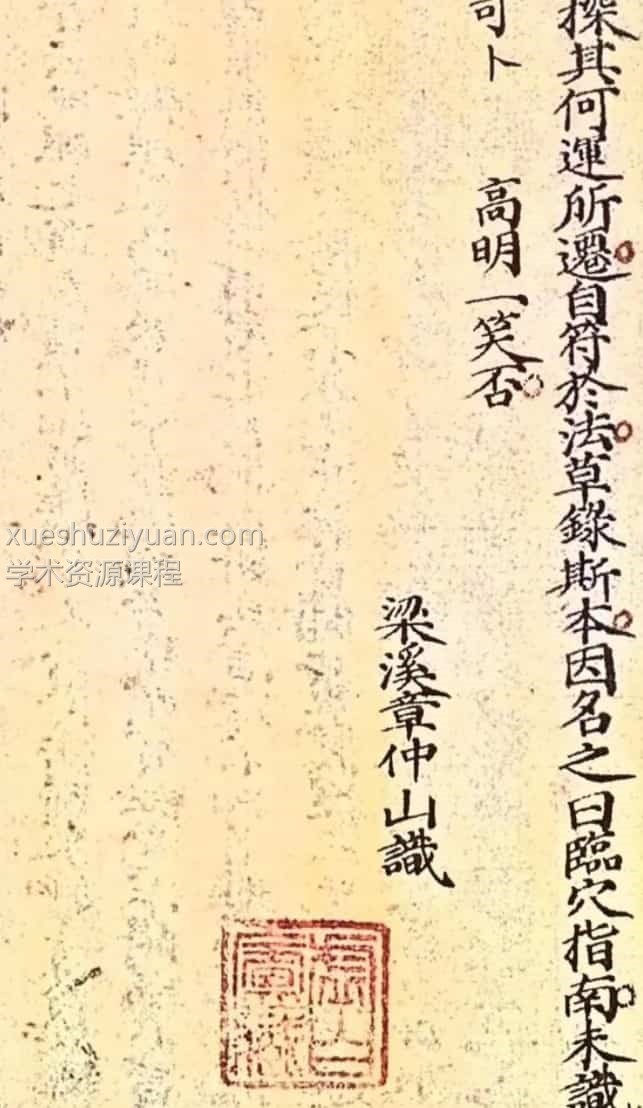 探其何運所遷自符於法草錄斯本因名之曰臨穴指南未識
可卜 高明一笑否
梁溪章仲山識
xueshuziyuan.com
学术资源课程